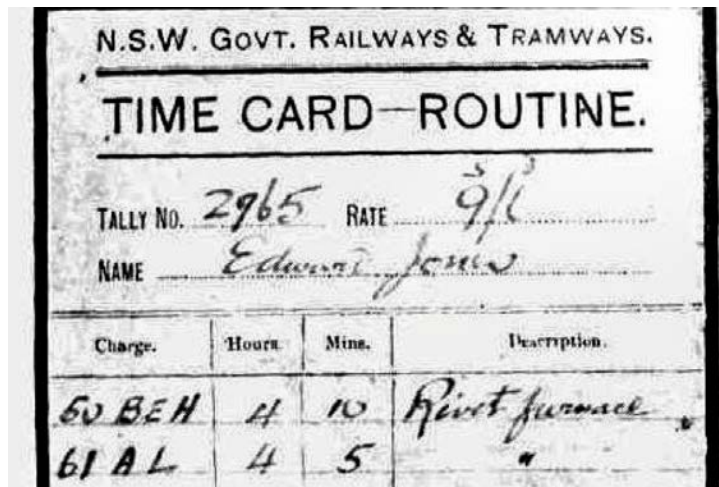 N.S.W. GOVT. RAILWAYS & TRAMWAYS.
TIME CARD—ROUTINE.
TALLY NO. 2965 RATE 9/6
NAME Edward Jones
Charge. Hours Mins. Description.
50 BEH 4 10 Rivet furnace
61 AL 4 5 "